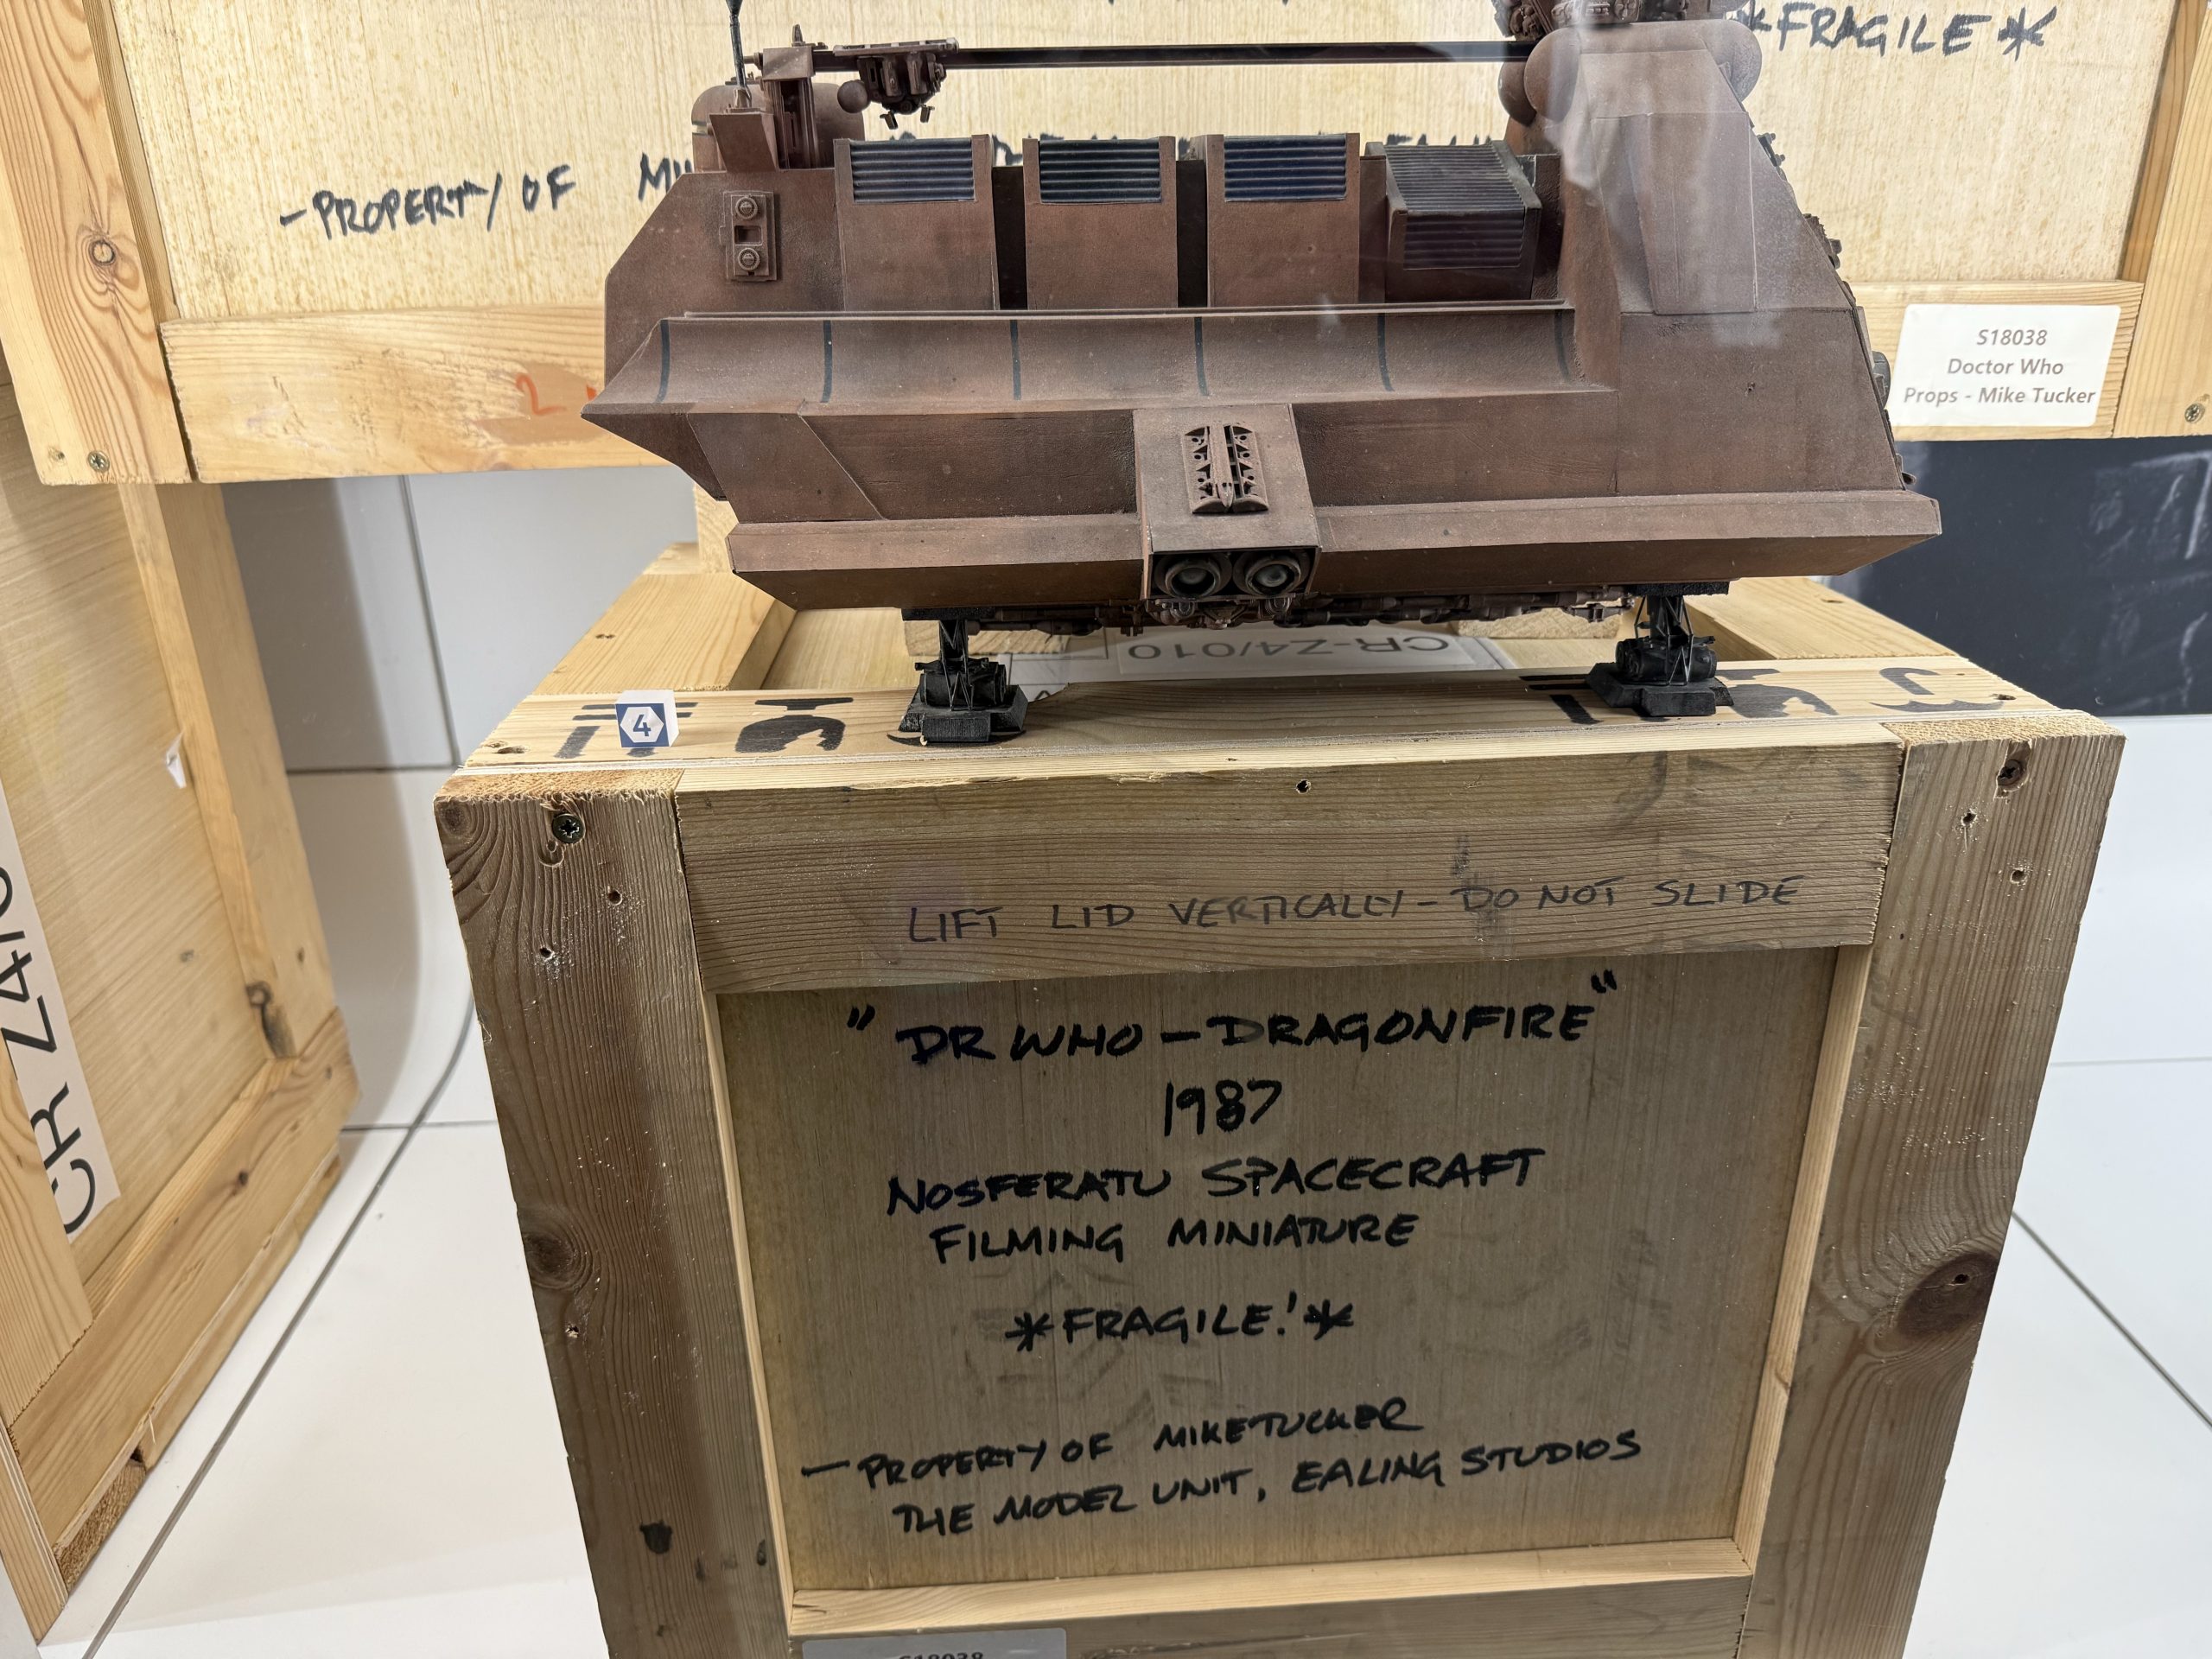 *FRAGILE*
- PROPERTY OF
S18038
Doctor Who
Props - Mike Tucker
CR-Z4/010
4
LIFT LID VERTICALLY - DO NOT SLIDE
"DR WHO - DRAGONFIRE"
1987
NOSFERATU SPACECRAFT
FILMING MINIATURE
*FRAGILE!*
- PROPERTY OF MIKE TUCKER
THE MODEL UNIT, EALING STUDIOS
S18038